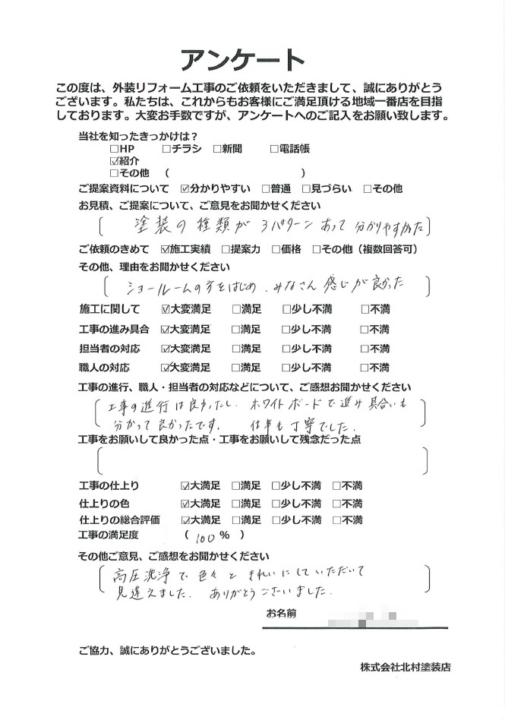 アンケート
この度は、外装リフォーム工事のご依頼をいただきまして、誠にありがとう
ございます。私たちは、これからもお客様にご満足頂ける地域一番店を目指
しております。大変お手数ですが、アンケートへのご記入をお願い致します。
当社を知ったきっかけは？
□HP □チラシ □新聞 □電話帳
☑紹介
□その他 （ ）
ご提案資料について ☑分かりやすい □普通 □見づらい □その他
お見積、ご提案について、ご意見をお聞かせください
塗装の種類が3パターンあって分かりやすかった
ご依頼のきめて ☑施工実績 □提案力 □価格 □その他（複数回答可）
その他、理由をお聞かせください
ショールームの方をはじめ、みなさん感じが良かった
施工に関して ☑大変満足 □満足 □少し不満 □不満
工事の進み具合 ☑大変満足 □満足 □少し不満 □不満
担当者の対応 ☑大変満足 □満足 □少し不満 □不満
職人の対応 ☑大変満足 □満足 □少し不満 □不満
工事の進行、職人・担当者の対応などについて、ご感想お聞かせください
工事の進行は良かったし、ホワイトボードで進み具合いも
分かって良かったです。 仕事も丁寧でした。
工事をお願いして良かった点・工事をお願いして残念だった点
工事の仕上り ☑大満足 □満足 □少し不満 □不満
仕上りの色 ☑大満足 □満足 □少し不満 □不満
仕上りの総合評価 ☑大満足 □満足 □少し不満 □不満
工事の満足度 （ 100 % ）
その他ご意見、ご感想をお聞かせください
高圧洗浄で色々ときれいにしていただいて
見違えました。 ありがとうございました。
お名前
ご協力、誠にありがとうございました。
株式会社北村塗装店